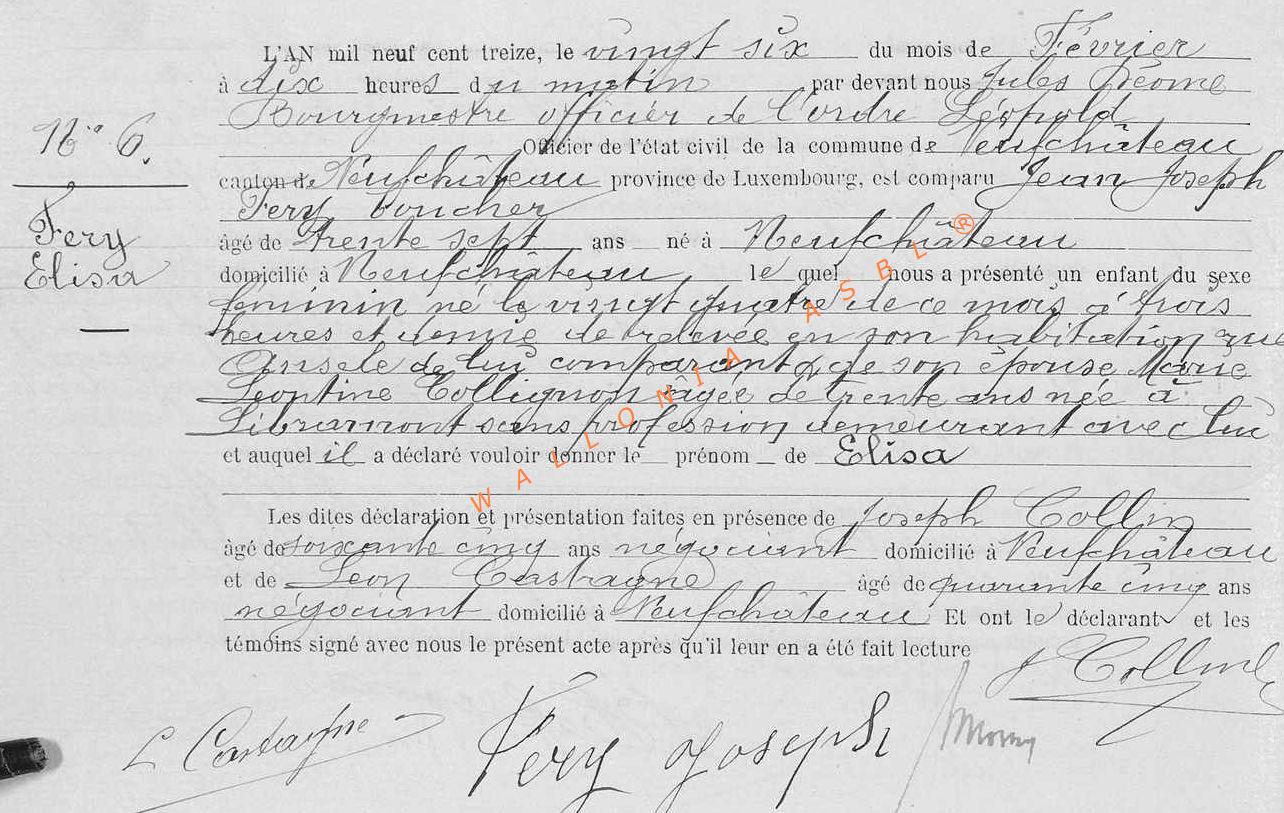 L'AN mil neuf cent treize, le vingt six du mois de Février
à dix heures du matin par devant nous Jules
Bourgmestre officier de l'ordre Léopold
Officier de l'état civil de la commune de Neufchâteau
canton de Neufchâteau province de Luxembourg, est comparu Jean Joseph
Fery boucher
âgé de trente sept ans né à Neufchâteau
domicilié à Neufchâteau le quel nous a présenté un enfant du sexe
feminin né le vingt quatre de ce mois à trois
heures et demie de relevée en son habitation rue
de lui comparant & de son épouse Marie
Leontine Collignon âgée de trente ans née à
Libramont sans profession demeurant avec lui
et auquel il a déclaré vouloir donner le prénom de Elisa
Les dites déclaration et présentation faites en présence de Joseph Collin
âgé de soixante cinq ans négociant domicilié à Neufchâteau
et de Leon Castagne âgé de quarante cinq ans
négociant domicilié à Neufchâteau Et ont le déclarant et les
témoins signé avec nous le présent acte après qu'il leur en a été fait lecture
J Collin
L Castagne Fery Joseph
No 6.
Fery
Elisa
WALLONIA ASBL ®